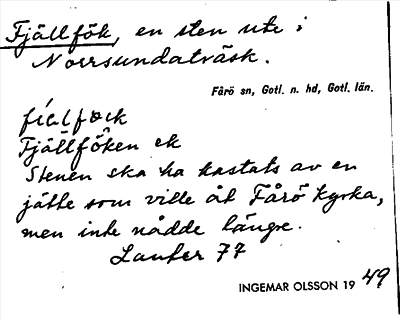 Fjällfök, en sten ute i
Norrsundaträsk.
Fårö sn, Gotl. n. hd, Gotl. län.
Fjällföken ek
Stenen ska ha kastats av en
jätte som ville åt Fårö kyrka,
men inte nådde längre.
77
INGEMAR OLSSON 1949